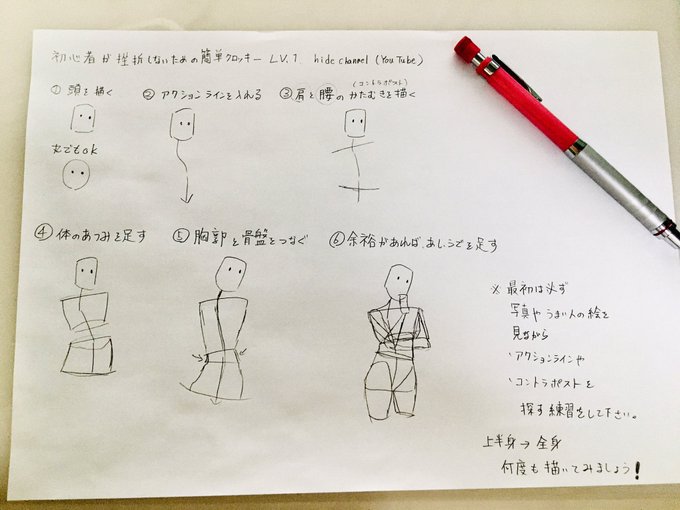 初心者が挫折しないための簡単クロッキー LV.1 hide channel (YouTube)
① 頭を描く
丸でもok
② アクションラインを入れる
(コントラポスト)
③ 肩と腰のかたむきを描く
④ 体のあつみを足す
⑤ 胸郭と骨盤をつなぐ
⑥ 余裕があれば、あし、うでを足す
※ 最初は必ず
写真やうまい人の絵を
見ながら
・アクションラインや
・コントラポストを
探す練習をして下さい。
上半身→全身
何度も描いてみましょう!